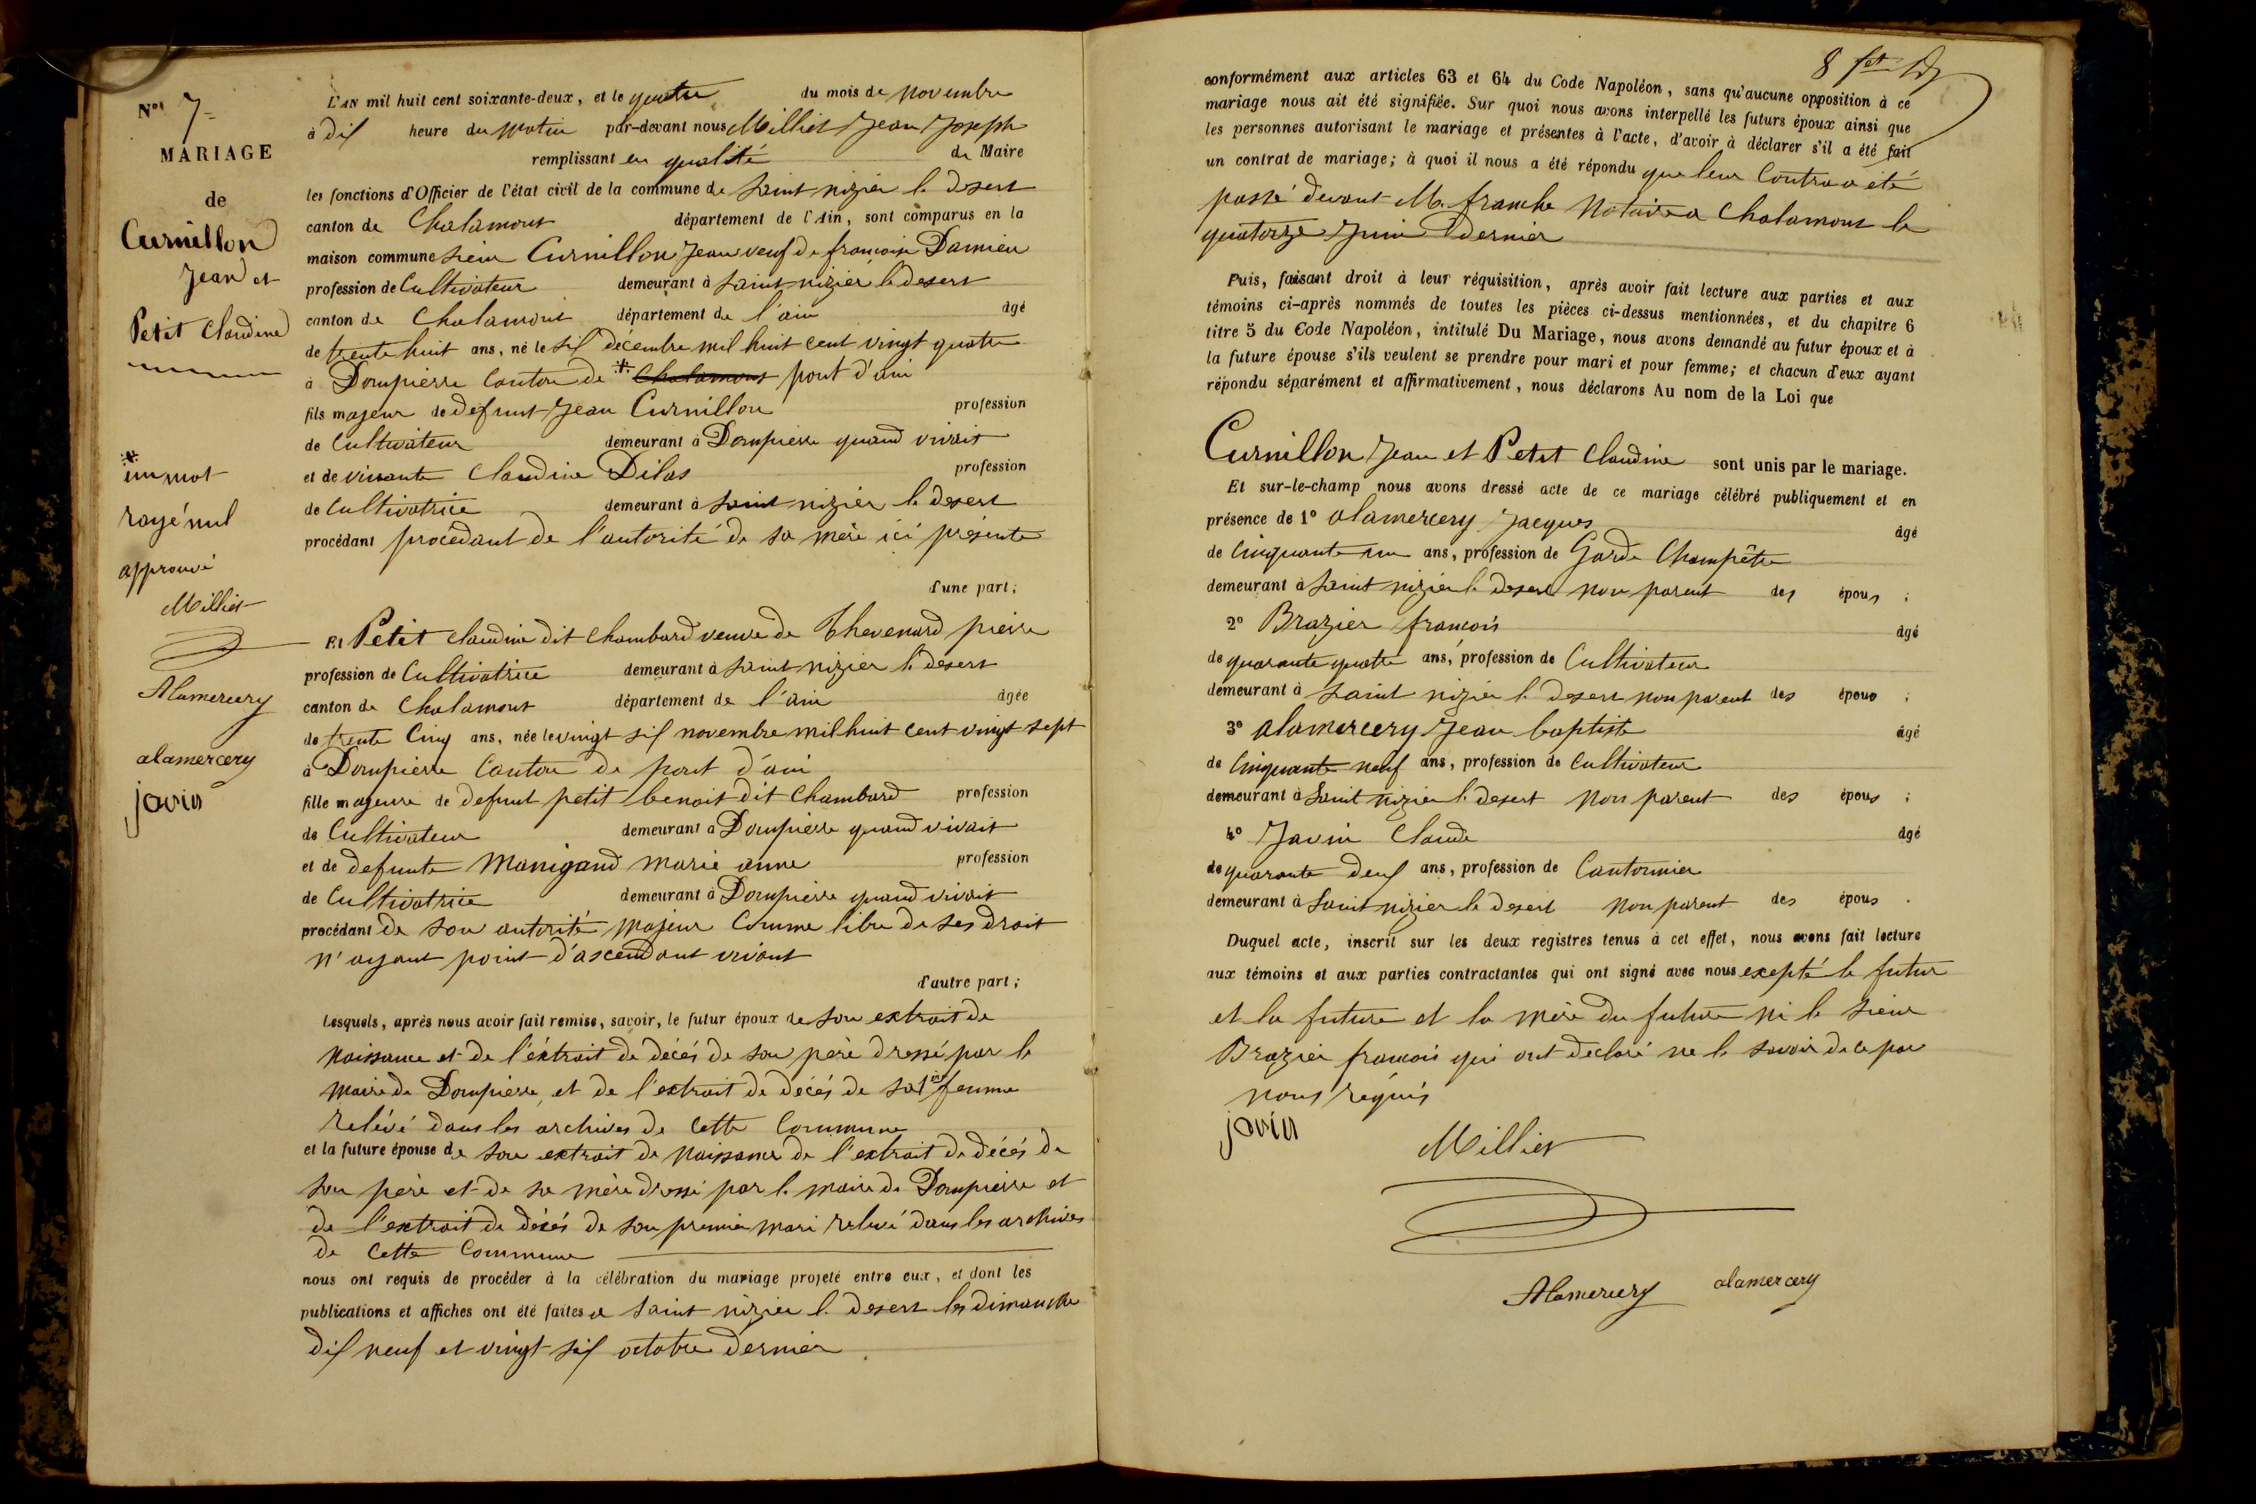 Nos 7
MARIAGE
de
Curnillon
Jean et
Petit Claudine
un mot
rayé nul
approuvé
Milliet
Alamercery
alamercery
javin
L'AN mil huit cent soixante-deux, et le quatre du mois de novembre
à dix heure du matin par-devant nous Milliet Jean Joseph
remplissant en qualité de Maire
les fonctions d'Officier de l'état civil de la commune de Saint nizier le desert
canton de Chalamont département de l'Ain, sont comparus en la
maison commune Sieur Curnillon Jean veuf de françoise Damien
profession de Cultivateur demeurant à Saint nizier le desert
canton de Chalamont département de l'ain âgé
de trente huit ans, né le six décembre mil huit cent vingt quatre
à Dompierre canton de * Chalamont pont d'ain
fils majeur de defunt Jean Curnillon profession
de Cultivateur demeurant à Dompierre quand vivait
et de vivante Claudine Dilas profession
de Cultivatrice demeurant à Saint nizier le desert
procédant procédant de l'autorité de sa mère ici présente
d'une part ;
Et Petit claudine dit Chambard veuve de Thevenard pierre
profession de Cultivatrice demeurant à Saint nizier le desert
canton de Chalamont département de l'ain âgée
de trente cinq ans, née le vingt six novembre mil huit cent vingt sept
à Dompierre canton de pont d'ain
fille majeure de defunt petit benoit dit Chambard profession
de Cultivateur demeurant à Dompierre quand vivait
et de defunte Manigand marie anne profession
de Cultivatrice demeurant à Dompierre quand vivait
procédant de son autorité majeur comme libre de ses droit
n'ayant point d'ascendant vivant
d'autre part ;
Lesquels, après nous avoir fait remise, savoir, le futur époux de son extrait de
naissance et de l'éxtrait de décés de son père dressé par le
maire de Dompierre, et de l'extrait de décés de sa 1ère femme
relévé dans les archives de cette Commune
et la future épouse de son extrait de naissance de l'extrait de décés de
son père et de sa mère dressé par le maire de Dompierre et
de l'extrait de décés de son premier mari relevé dans les archives
de cette Commune
nous ont requis de procéder à la célébration du mariage projeté entre eux, et dont les
publications et affiches ont été faites a Saint nizier le desert les dimanche
dix neuf et vingt six octobre dernier
8 fet
conformément aux articles 63 et 64 du Code Napoléon, sans qu'aucune opposition à ce
mariage nous ait été signifiée. Sur quoi nous avons interpellé les futurs époux ainsi que
les personnes autorisant le mariage et présentes à l'acte, d'avoir à déclarer s'il a été fait
un contrat de mariage; à quoi il nous a été répondu que leur Contra a été
passé devant M. franche Notaire a Chalamont le
quatorze Juin dernier
Puis, faisant droit à leur réquisition, après avoir fait lecture aux parties et aux
témoins ci-après nommés de toutes les pièces ci-dessus mentionnées, et du chapitre 6
titre 5 du Code Napoléon, intitulé Du Mariage, nous avons demandé au futur époux et à
la future épouse s'ils veulent se prendre pour mari et pour femme; et chacun d'eux ayant
répondu séparément et affirmativement, nous déclarons Au nom de la Loi que
Curnillon Jean et Petit Claudine sont unis par le mariage.
Et sur-le-champ nous avons dressé acte de ce mariage célébré publiquement et en
présence de 1° alamercery Jacques âgé
de Cinquante un ans, profession de Garde Champêtre
demeurant à Saint nizier le desert non parent des épous ;
2° Brazier francois âgé
de quarante quatre ans, profession de Cultivateur
demeurant à Saint nizier le desert non parent des épous ;
3° alamercery Jean baptiste âgé
de Cinquante neuf ans, profession de Cultivateur
demeurant à Saint nizier le desert non parent des épous ;
4° Javin Claude âgé
de quarante deux ans, profession de Cantonnier
demeurant à Saint nizier le desert non parent des épous .
Duquel acte, inscrit sur les deux registres tenus à cet effet, nous avons fait lecture
aux témoins et aux parties contractantes qui ont signé avec nous excepté le futur
et la future et la mère du future ni le sieur
Brazier francois qui ont declaré ne le savoir de ce par
nous requis
javin
Milliet
Alamercery alamercery